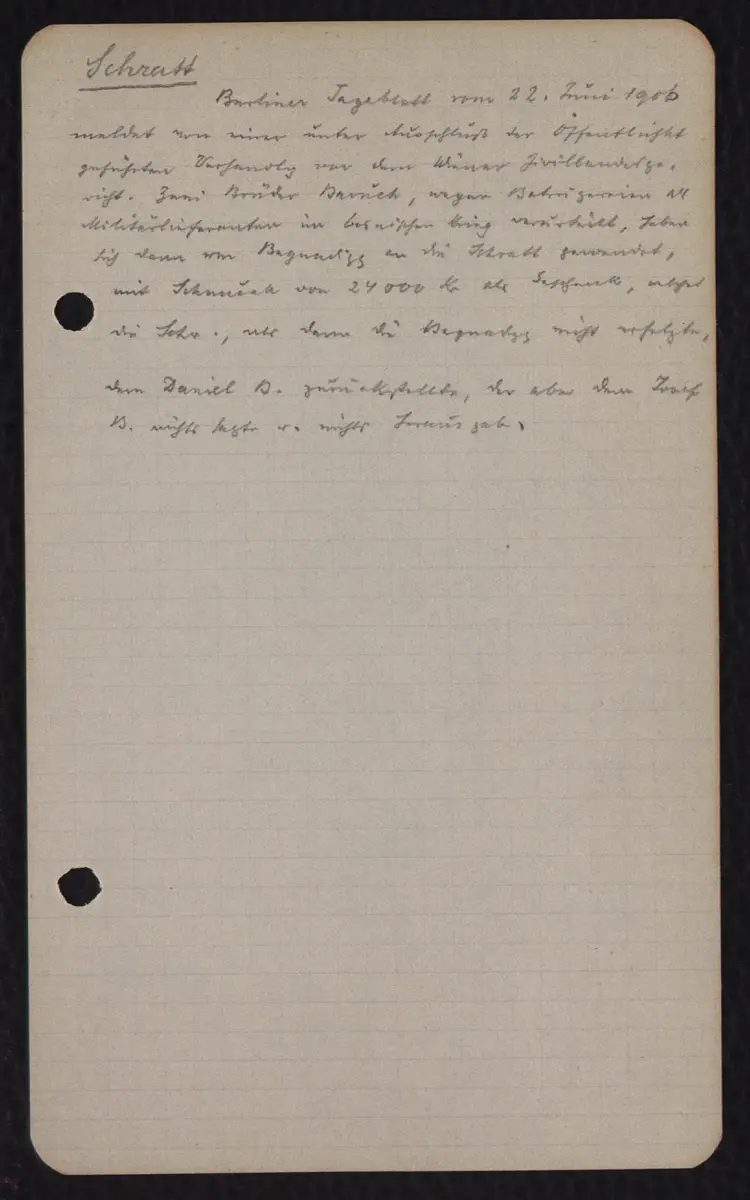 Schratt
Berliner Tageblatt vom 22. Juni 1906
meldet von einer unter Ausschluß der Öffentlichkt
geführten Verhandlg vor dem Wiener Zivillandesge-
richt. Zwei Brüder Baruch, wegen Betrügereien als
Militärlieferanten im bosnischen Krieg verurteilt, haben
sich dann um Begnadigg an die Schratt gewendet,
mit Schmuck von 24000 Kr als Geschenk, welches
die Schr., als dann die Begnadgg nicht erfolgte,
dem Daniel B. zurückstellte, der aber dem Josef
B. nichts sagte u. nichts herausgab.